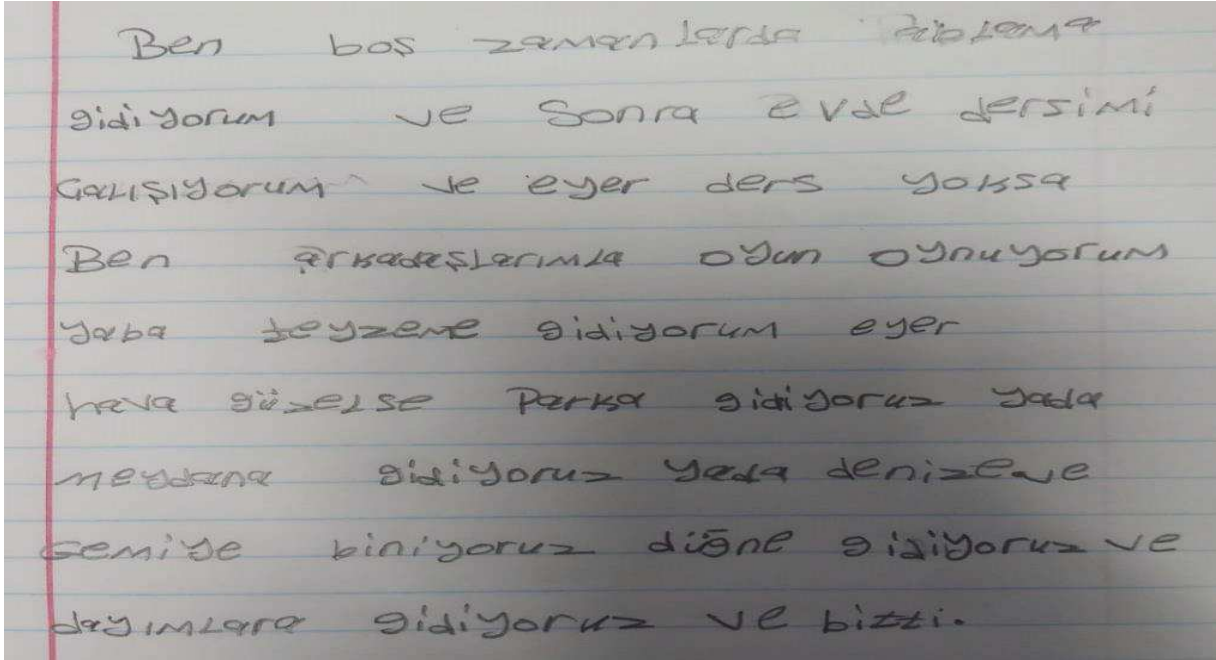 Ben boş zamanlarda
gidiyorum ve Sonra evde dersimi
Çalışıyorum ve eyer ders yoksa
Ben arkadaşlarımla oyun oynuyorum
yaba teyzeme gidiyorum eyer
hava güzelse Parka gidiyoruz yada
meydana gidiyoruz yada denize ve
gemiye biniyoruz diğne gidiyoruz ve
dayımlara gidiyoruz ve bitti.